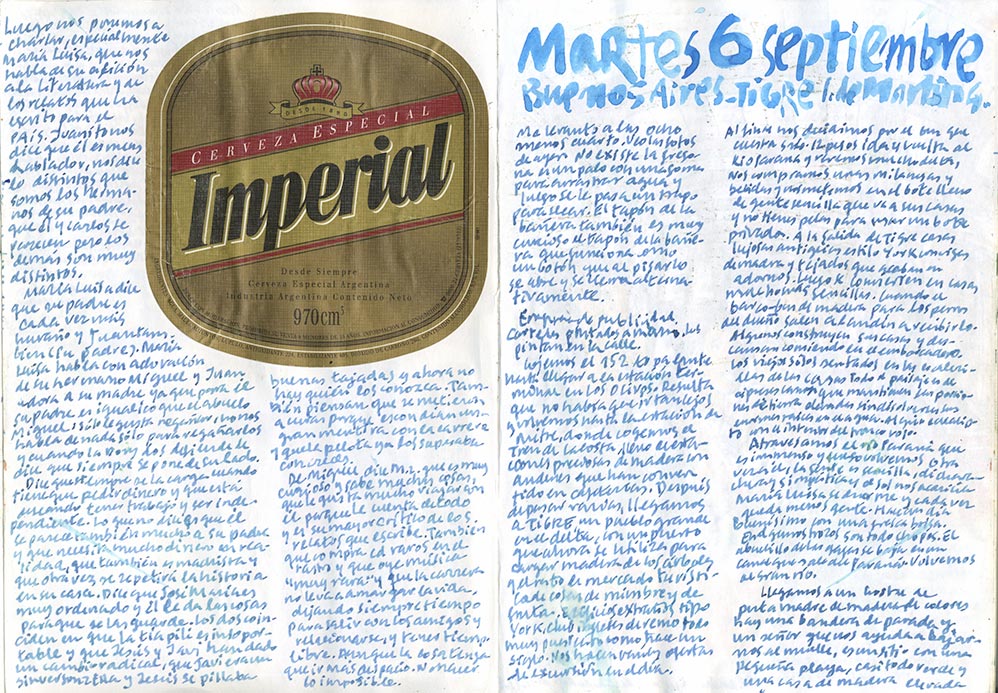 Luego nos ponemos a
charlar, especialmente
María Luisa, que nos
habla de su afición
a la literatura y de
los relatos que ha
escrito para el
PAIS. Juanito nos
dice que él es muy
hablador, nos
lo distintos que
somos los herma
nos de su padre,
que él y Carlos se
parecen pero los
demás son muy
distintos.
María Luisa dice
que su padre es
cada vez más
huraño y Juan tam
bien (su padre). María
Luisa habla con adoración
de tu hermano Miguel y Juan
adora a su madre ya que para él
su padre es igualico que el abuelo
Miguel, sólo le gusta regañar, no nos
habla de nada sólo para regañarlos
y cuando la Dory los defiende le
dice que siempre se pone de su lado.
Dice que siempre se la carga cuando
tiene que pedir dinero y que está
deseando tener trabajo y ser inde-
pendiente. Lo que no dice es que él
se parece también mucho a su padre
y que necesita mucho dinero en rea
lidad, que también es machista y
que otra vez se repetirá la historia
en su casa. Dice que José María es
muy ordenado y él le da las cosas
para que se las guarde. Los dos coin
ciden en que la tia pili es insopor-
table y que Jesús y Javi han dado
un cambio radical, que Javi era un
sinvergonzón y Jesús se pillaba
DESDE 1880
CERVEZA ESPECIAL
Imperial
Desde Siempre
Cerveza Especial Argentina
Industria Argentina Contenido Neto
970cm³
buenas tajadas y ahora no
hay quien los conozca. Tam-
bién piensan que se metieron
a curas porque escondían un
gran mentira con la carrera
y que la pelota ya los superaba
con creces.
De Miguel dice M.L. que es muy
curioso y sabe muchas cosas,
que le gusta mucho viajar con
él porque le cuenta de todo
y es su mayor crítico de los
relatos que escribe. También
que compra cd raros en el
rastro y que oye música
"muy rara" y que la carrera
no le va a amargar la vida,
dejando siempre tiempo
para salir con los amigos y
relacionarse, y tener tiempo
libre. Aunque la cosa tenga
que ir más despacio. No hacer
lo imposible.
Martes 6 septiembre
Buenos Aires-Tigre I. de Martina.
Me levanto a las ocho
menos cuarto. Veo las fotos
de ayer. No existe la frego
na un palo con una goma
para arrastrar agua y
luego se le pasa un trapo
para secar. El tapón de la
bañera también es muy
curioso el tapón de la bañe-
ra que funciona como
un botón que al pisarlo
se abre y se cierra alterna
tivamente.
Empresa de publicidad,
carteles pintados a mano, los
pintan en la calle.
Cojemos el 152 to palante
hasta llegar a la estación ter-
minal en los Olivos. Resulta
que no había que ir tan lejos
y volvemos hasta la estación de
Mitre, donde cogemos el
Tren de la costa, lleno de esta-
ciones preciosas de madera con
andenes que han conver
tido en cafeterías. Después
de pasar varias, llegamos
a TIGRE un pueblo grande
en el delta, con un puerto
que ahora se utiliza para
cargar madera de los árboles
y el resto de mercado turísti-
ca de cosas de mimbre y de
fruta. Edificios extraños tipo
York, club inglés de remo todo
muy pulcro como hace un
siglo. Nos hacen varias ofertas
de excursión en el día.
Al final nos decidimos por el bus que
cuesta sólo 12 pesos ida y vuelta al
río Paraná y veremos mucho delta,
nos compramos unas milanesas y
bebidas y nos metemos en el bote lleno
de gente sencilla que va a sus casas
y no tienen pelas para usar un bote
privado. A la salida de Tigre casas
lujosas antiguas estilo York inglesas
de madera y tejados que acaban en
adornos. Luego se convierten en casas
mucho más sencillas. Cuando el
barco-bus para los perros
del dueño salen al andén a recibirlo.
Algunos construyen sus casas y des-
cansan comiendo en el embarcadero.
Los viejos sólo sentados en las escaleri-
llas de las casas. Todo el paisaje de
Atravesamos el río Paraná que
es inmenso y luego volvemos. Otra
vez la gente es sencilla dicha
chera y simpática y el sol nos acaricia
María Luisa se duerme y cada vez
queda menos gente. Hace un día
buenísimo con una fresca bolsa.
El
abuelillo de las gafas se baja en un
canal que sale del Paraná. Volvemos
al gran río.
Llegamos a un poste de
puta madre de madera de colores
hay una bandera de parada y
un señor que nos ayuda a bajar
nos al muelle, es un sitio con una
pequeña playa, casi todo verde y
una casa de madera elevada